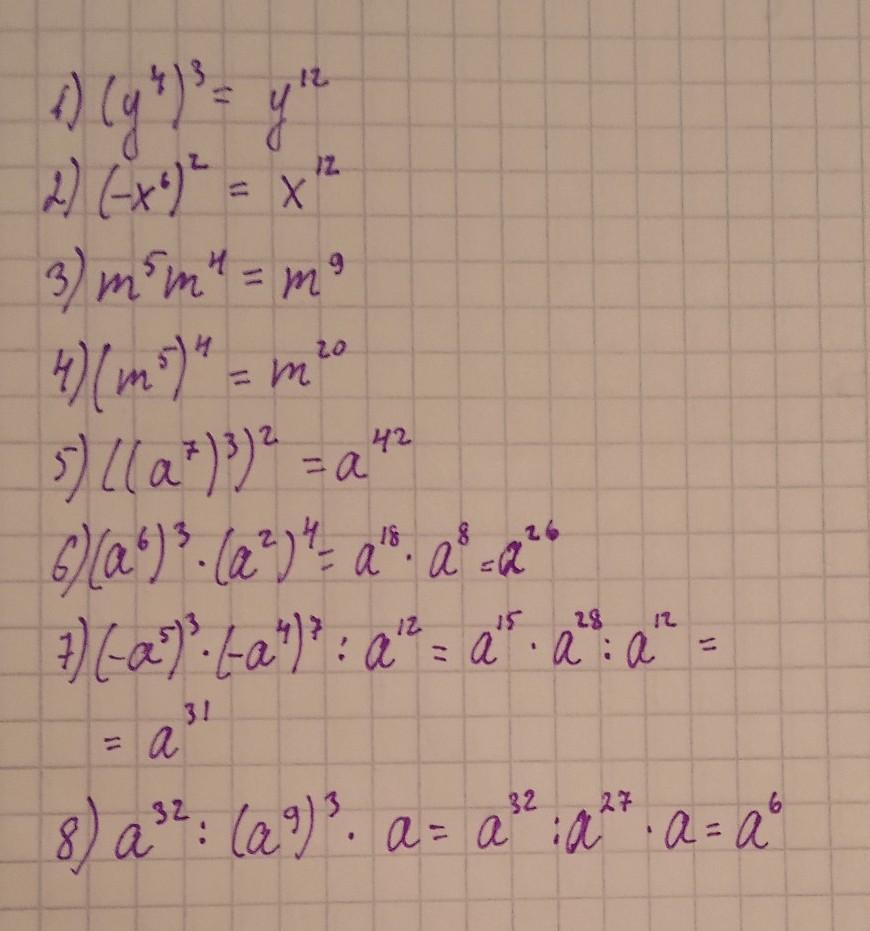 1) (y⁴)³ = y¹²
2) (-x⁶)² = x¹²
3) m⁵m⁴ = m⁹
4) (m⁵)⁴ = m²⁰
5) ((a⁷)³)² = a⁴²
6) (a⁶)³ · (a²)⁴ = a¹⁸ · a⁸ = a²⁶
7) (-a⁵)³ · (-a⁴)⁷ : a¹² = a¹⁵ · a²⁸ : a¹² =
= a³¹
8) a³² : (a⁹)³ · a = a³² : a²⁷ · a = a⁶